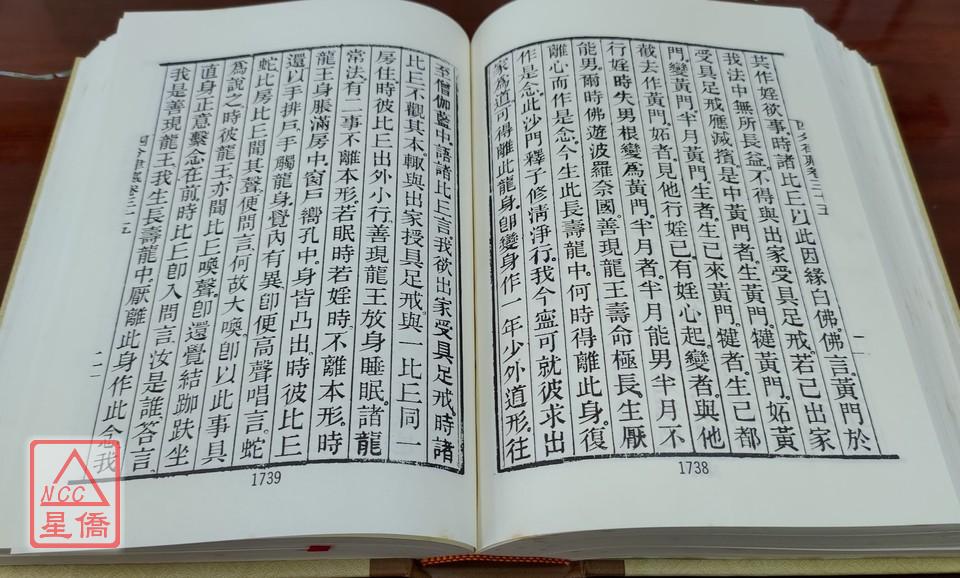 共作婬欲事時諸比丘以此因緣白佛佛言黃門於
我法中無所長益不得與出家受具足戒若已出家
受具足戒應滅擯是中黃門者生黃門犍黃門妬黃
門變黃門半月黃門生者生已來黃門犍者生已都
截去作黃門妬者見他行婬已有婬心起變者與他
行婬時失男根變為黃門半月者半月能男半月不
能男爾時佛遊波羅奈國善現龍王壽命極長生厭
離心而作是念今生此長壽龍中何時得離此身復
作是念此沙門釋子修清淨行我今寧可就彼求出
家為道可得離此龍身卽變身作一年少外道形往
四分律藏卷三十五
1738
至僧伽藍中語諸比丘言我欲出家受具足戒時諸
比丘不觀其本輒與出家授具足戒與一比丘同一
房住時彼比丘出外小行善現龍王放身睡眠諸龍
常法有二事不離本形若眠時若婬時不離本形時
龍王身脹滿房中窗戶嚮孔中身皆凸出時彼比丘
還以手排戶手觸龍身覺內有異卽便高聲唱言蛇
蛇比房比丘聞其聲便問言何故大喚卽以此事具
為說之時彼龍王亦聞比丘喚聲卽還覺結跏趺坐
直身正意繫念在前時比丘卽入問言汝是誰答言
我是善現龍王我生長壽龍中厭離此身作此念我
四分律藏卷三十五
1739
NCC
星僑